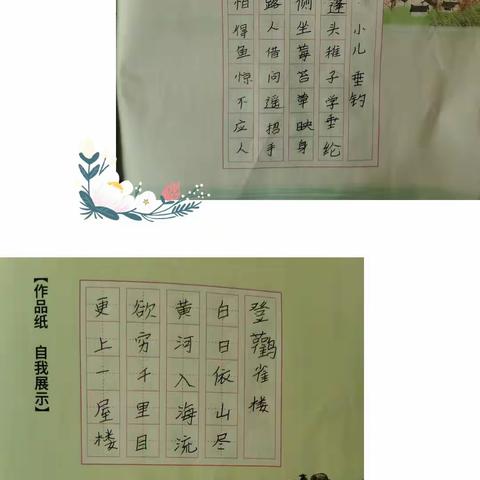 小儿垂钓
蓬头稚子学垂纶
侧坐莓苔草映身
路人借问遥招手
怕得鱼惊不应人
【作品纸 自我展示】
登鹳雀楼
白日依山尽
黄河入海流
欲穷千里目
更上一屋楼